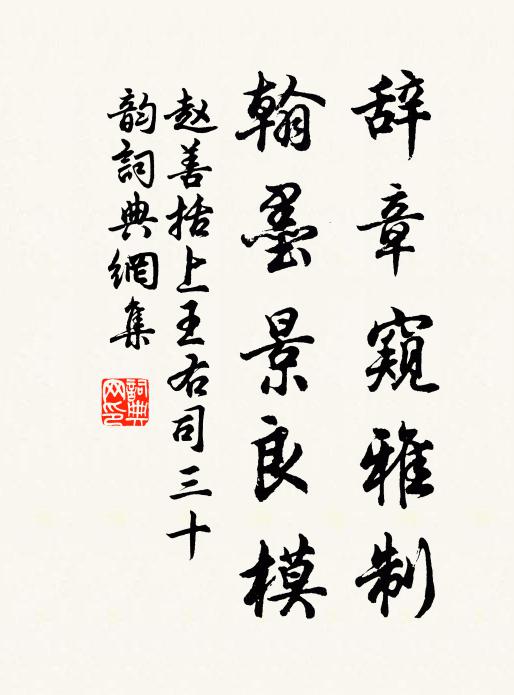 辞章窺雅制
翰墨景良模
赵善括上王右司三十
韵詞典網集
詞典网印